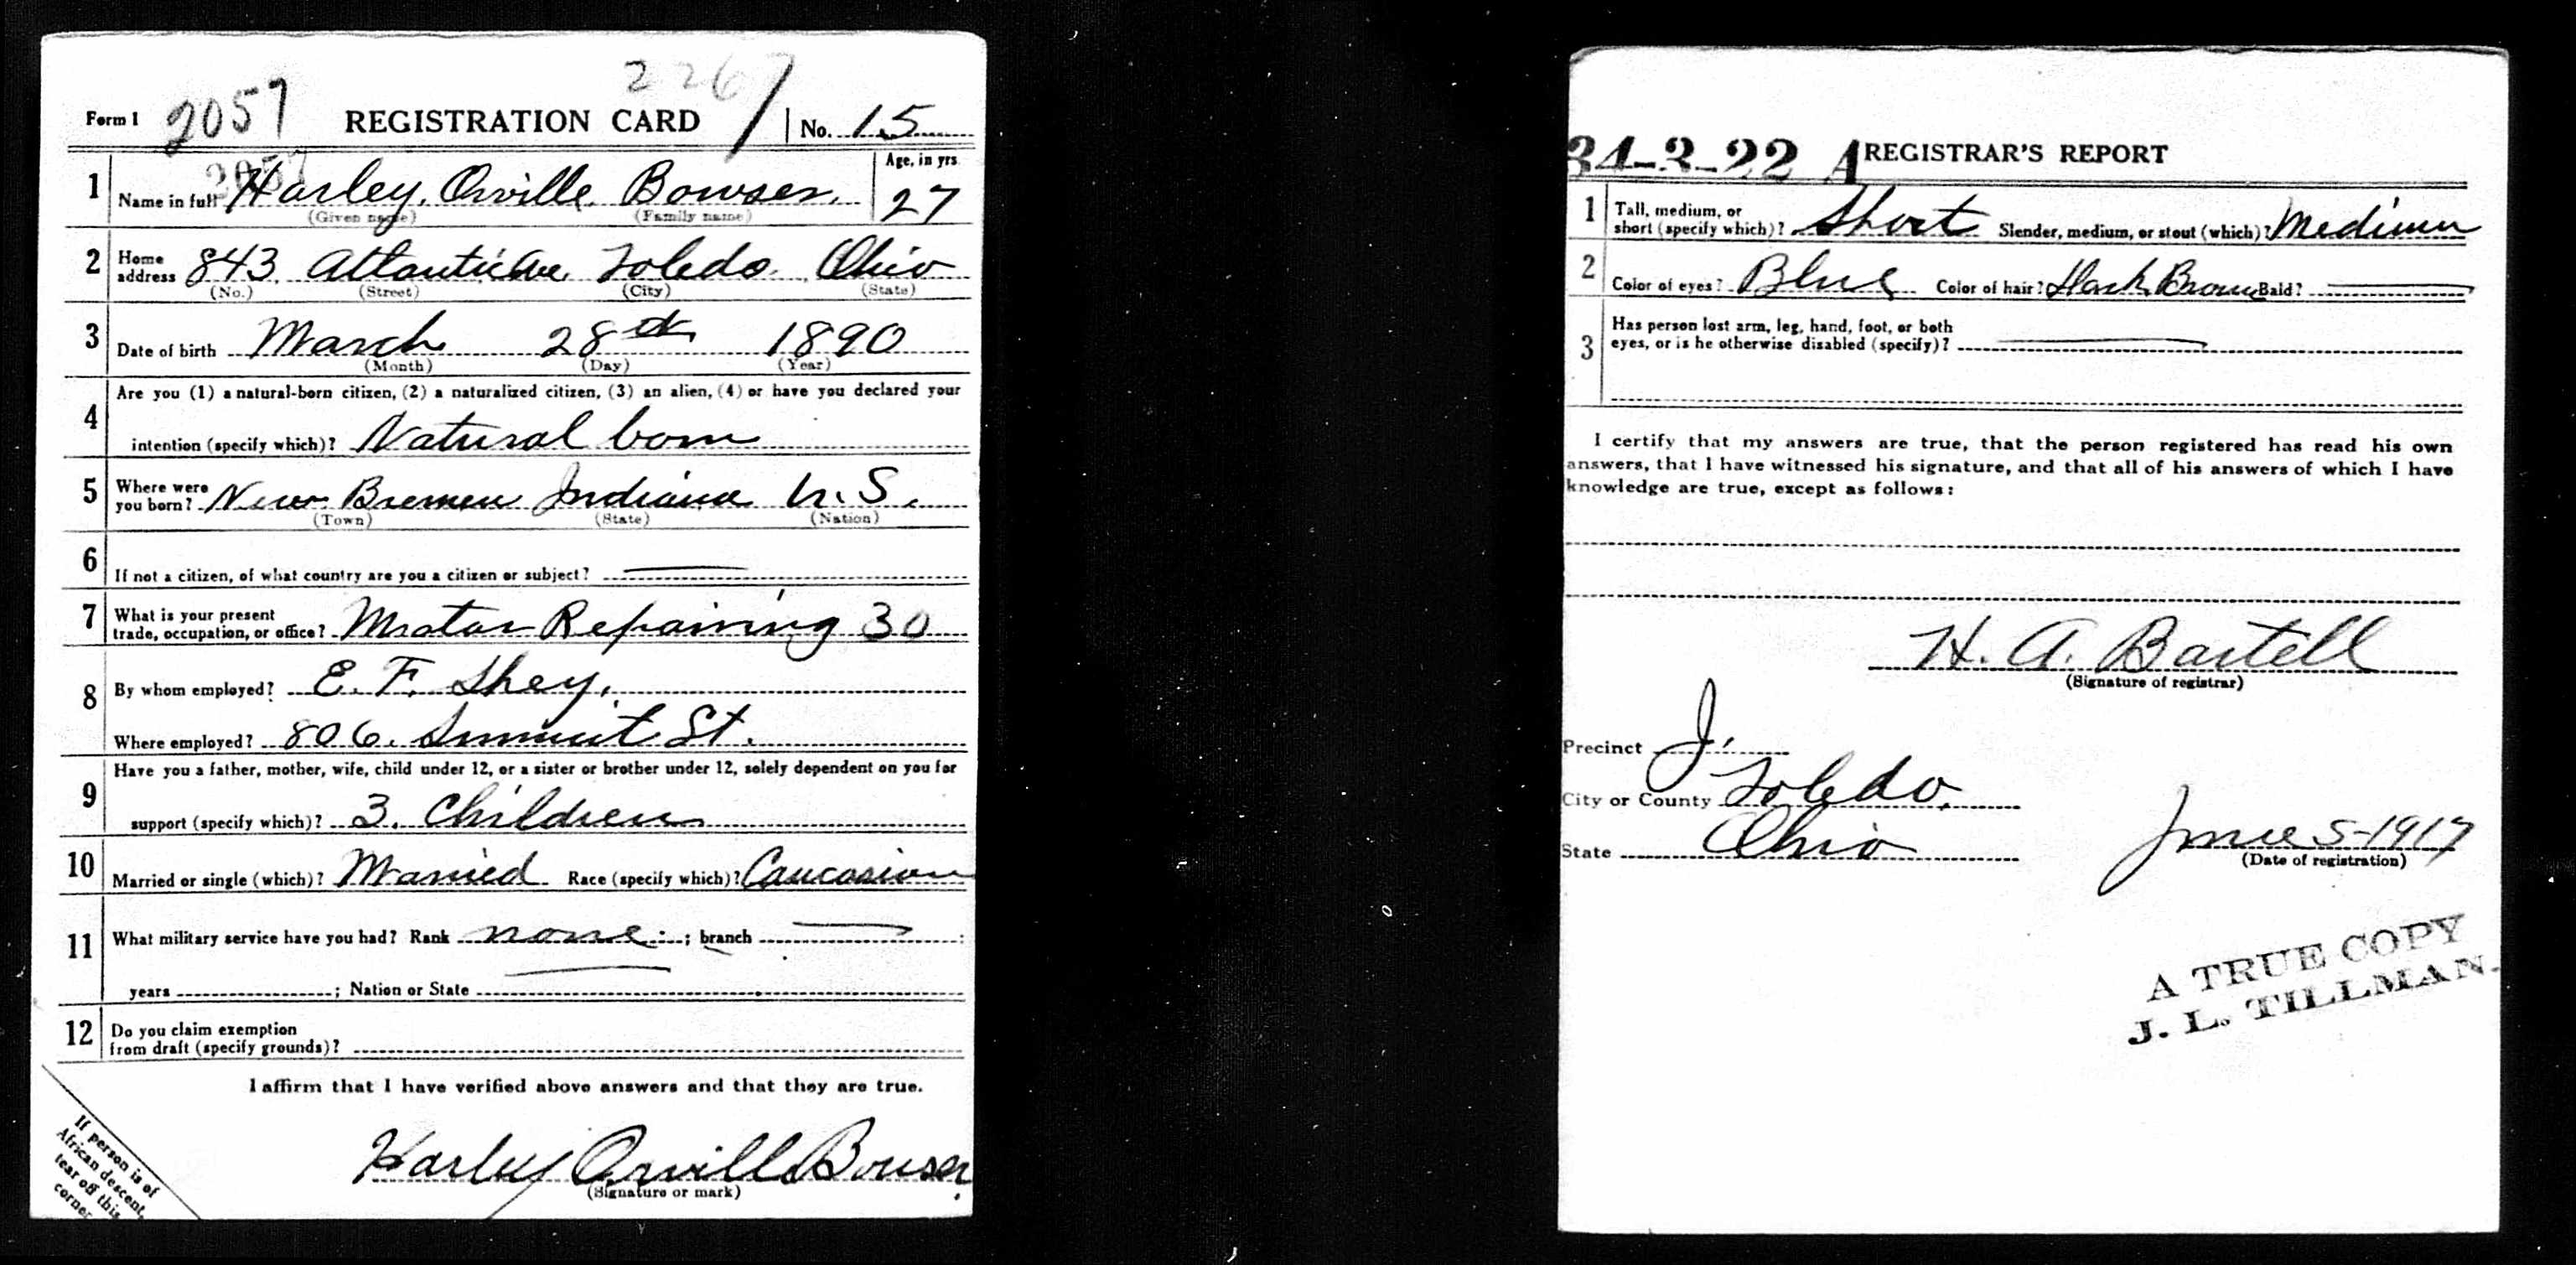 2267
Form 1 2057 REGISTRATION CARD No. 15
2057
1 Name in full Harley Orville Bowser Age, in yrs. 27
(Given name) (Family name)
2 Home address 843 Atlantic Ave Toledo Ohio
(No.) (Street) (City) (State)
3 Date of birth March 28th 1890
(Month) (Day) (Year)
4 Are you (1) a natural-born citizen, (2) a naturalized citizen, (3) an alien, (4) or have you declared your
intention (specify which)? Natural born
5 Where were you born? New Bremen Indiana U.S.
(Town) (State) (Nation)
6 If not a citizen, of what country are you a citizen or subject?
7 What is your present
trade, occupation, or office? Motor Repairing 30
8 By whom employed? E. F. Shey.
Where employed? 806. Summit St.
9 Have you a father, mother, wife, child under 12, or a sister or brother under 12, solely dependent on you for
support (specify which)? 3. Children
10 Married or single (which)? Married Race (specify which)? Caucasian
11 What military service have you had? Rank none ; branch ;
years ; Nation or State
12 Do you claim exemption
from draft (specify grounds)?
I affirm that I have verified above answers and that they are true.
Harley Orville Bowser
(Signature or mark)
If person is of
African descent,
tear off this
corner.
34-3-22 A REGISTRAR'S REPORT
1 Tall, medium, or
short (specify which)? Short Slender, medium, or stout (which)? Medium
2 Color of eyes? Blue Color of hair? Dark Brown Bald?
3 Has person lost arm, leg, hand, foot, or both
eyes, or is he otherwise disabled (specify)?
I certify that my answers are true, that the person registered has read his own
answers, that I have witnessed his signature, and that all of his answers of which I have
knowledge are true, except as follows:
H. A. Bartell
(Signature of registrar)
Precinct J.
City or County Toledo.
State Ohio
June 5-1917
(Date of registration)
A TRUE COPY
J. L. TILLMAN.